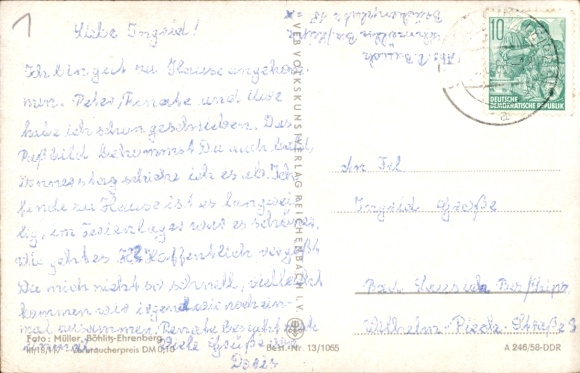 1
Liebe Ingrid!
Ich bin gut zu Hause angekom-
men. Peter, Renate und Uwe
habe ich schon geschrieben. Das
Paßbild bekommst Du auch bald
Donnerstag schicke ich es ab. Ich
finde zu Hause ist es langwei-
lig, im Ferienlager war es schöner.
Wie geht es Hoffentlich vergißt
Du mich nicht so schnell, vielleicht
kommen wir irgendwie noch ein-
mal zusammen. Renate
Viele Grüße von
Doris
Foto: Müller, Böhlitz-Ehrenberg
III/18/17 Verbraucherpreis DM 0,10
Best.-Nr. 13/1065
VEB VOLKSKUNSTVERLAG REICHENBACH I. V.
10
DEUTSCHE
DEMOKRATISCHE REPUBLIK
An Frl
Ingrid Große
Bad Bez/Leipz
Wilhelm-Pieck-Straße 3
A 246/58-DDR